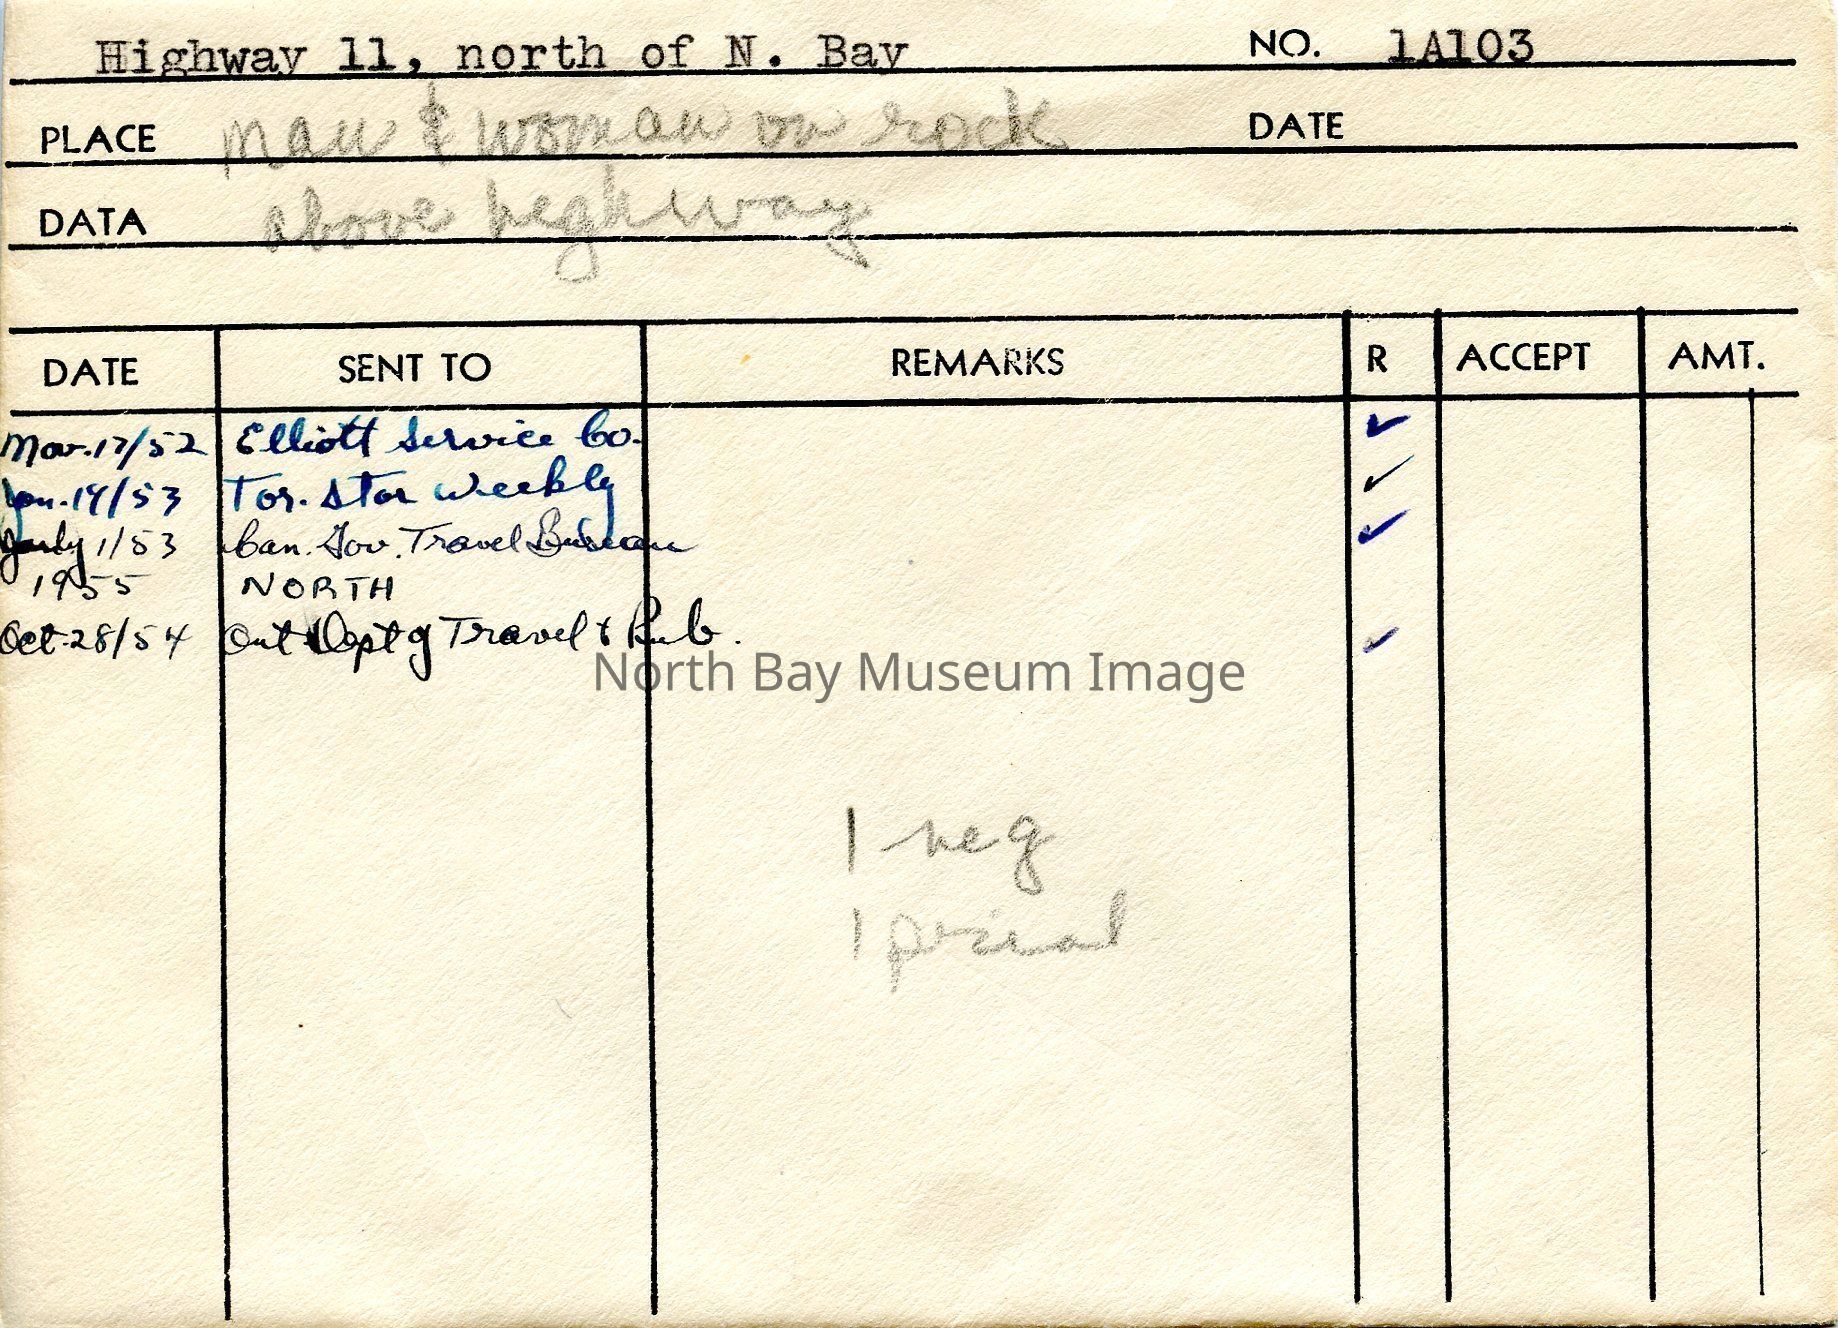 Highway 11, north of N. Bay NO. 1A103
PLACE man & woman on rock DATE
DATA above highway
DATE SENT TO REMARKS R ACCEPT AMT.
Mar. 17/52 Elliott Service Co. ✓
Jan. 19/53 Tor. Star Weekly ✓
July 1/53 Can. Gov. Travel Bureau ✓
1955 NORTH
Oct. 28/54 Ont Dept of Travel & Pub. ✓
North Bay Museum Image
1 neg
1